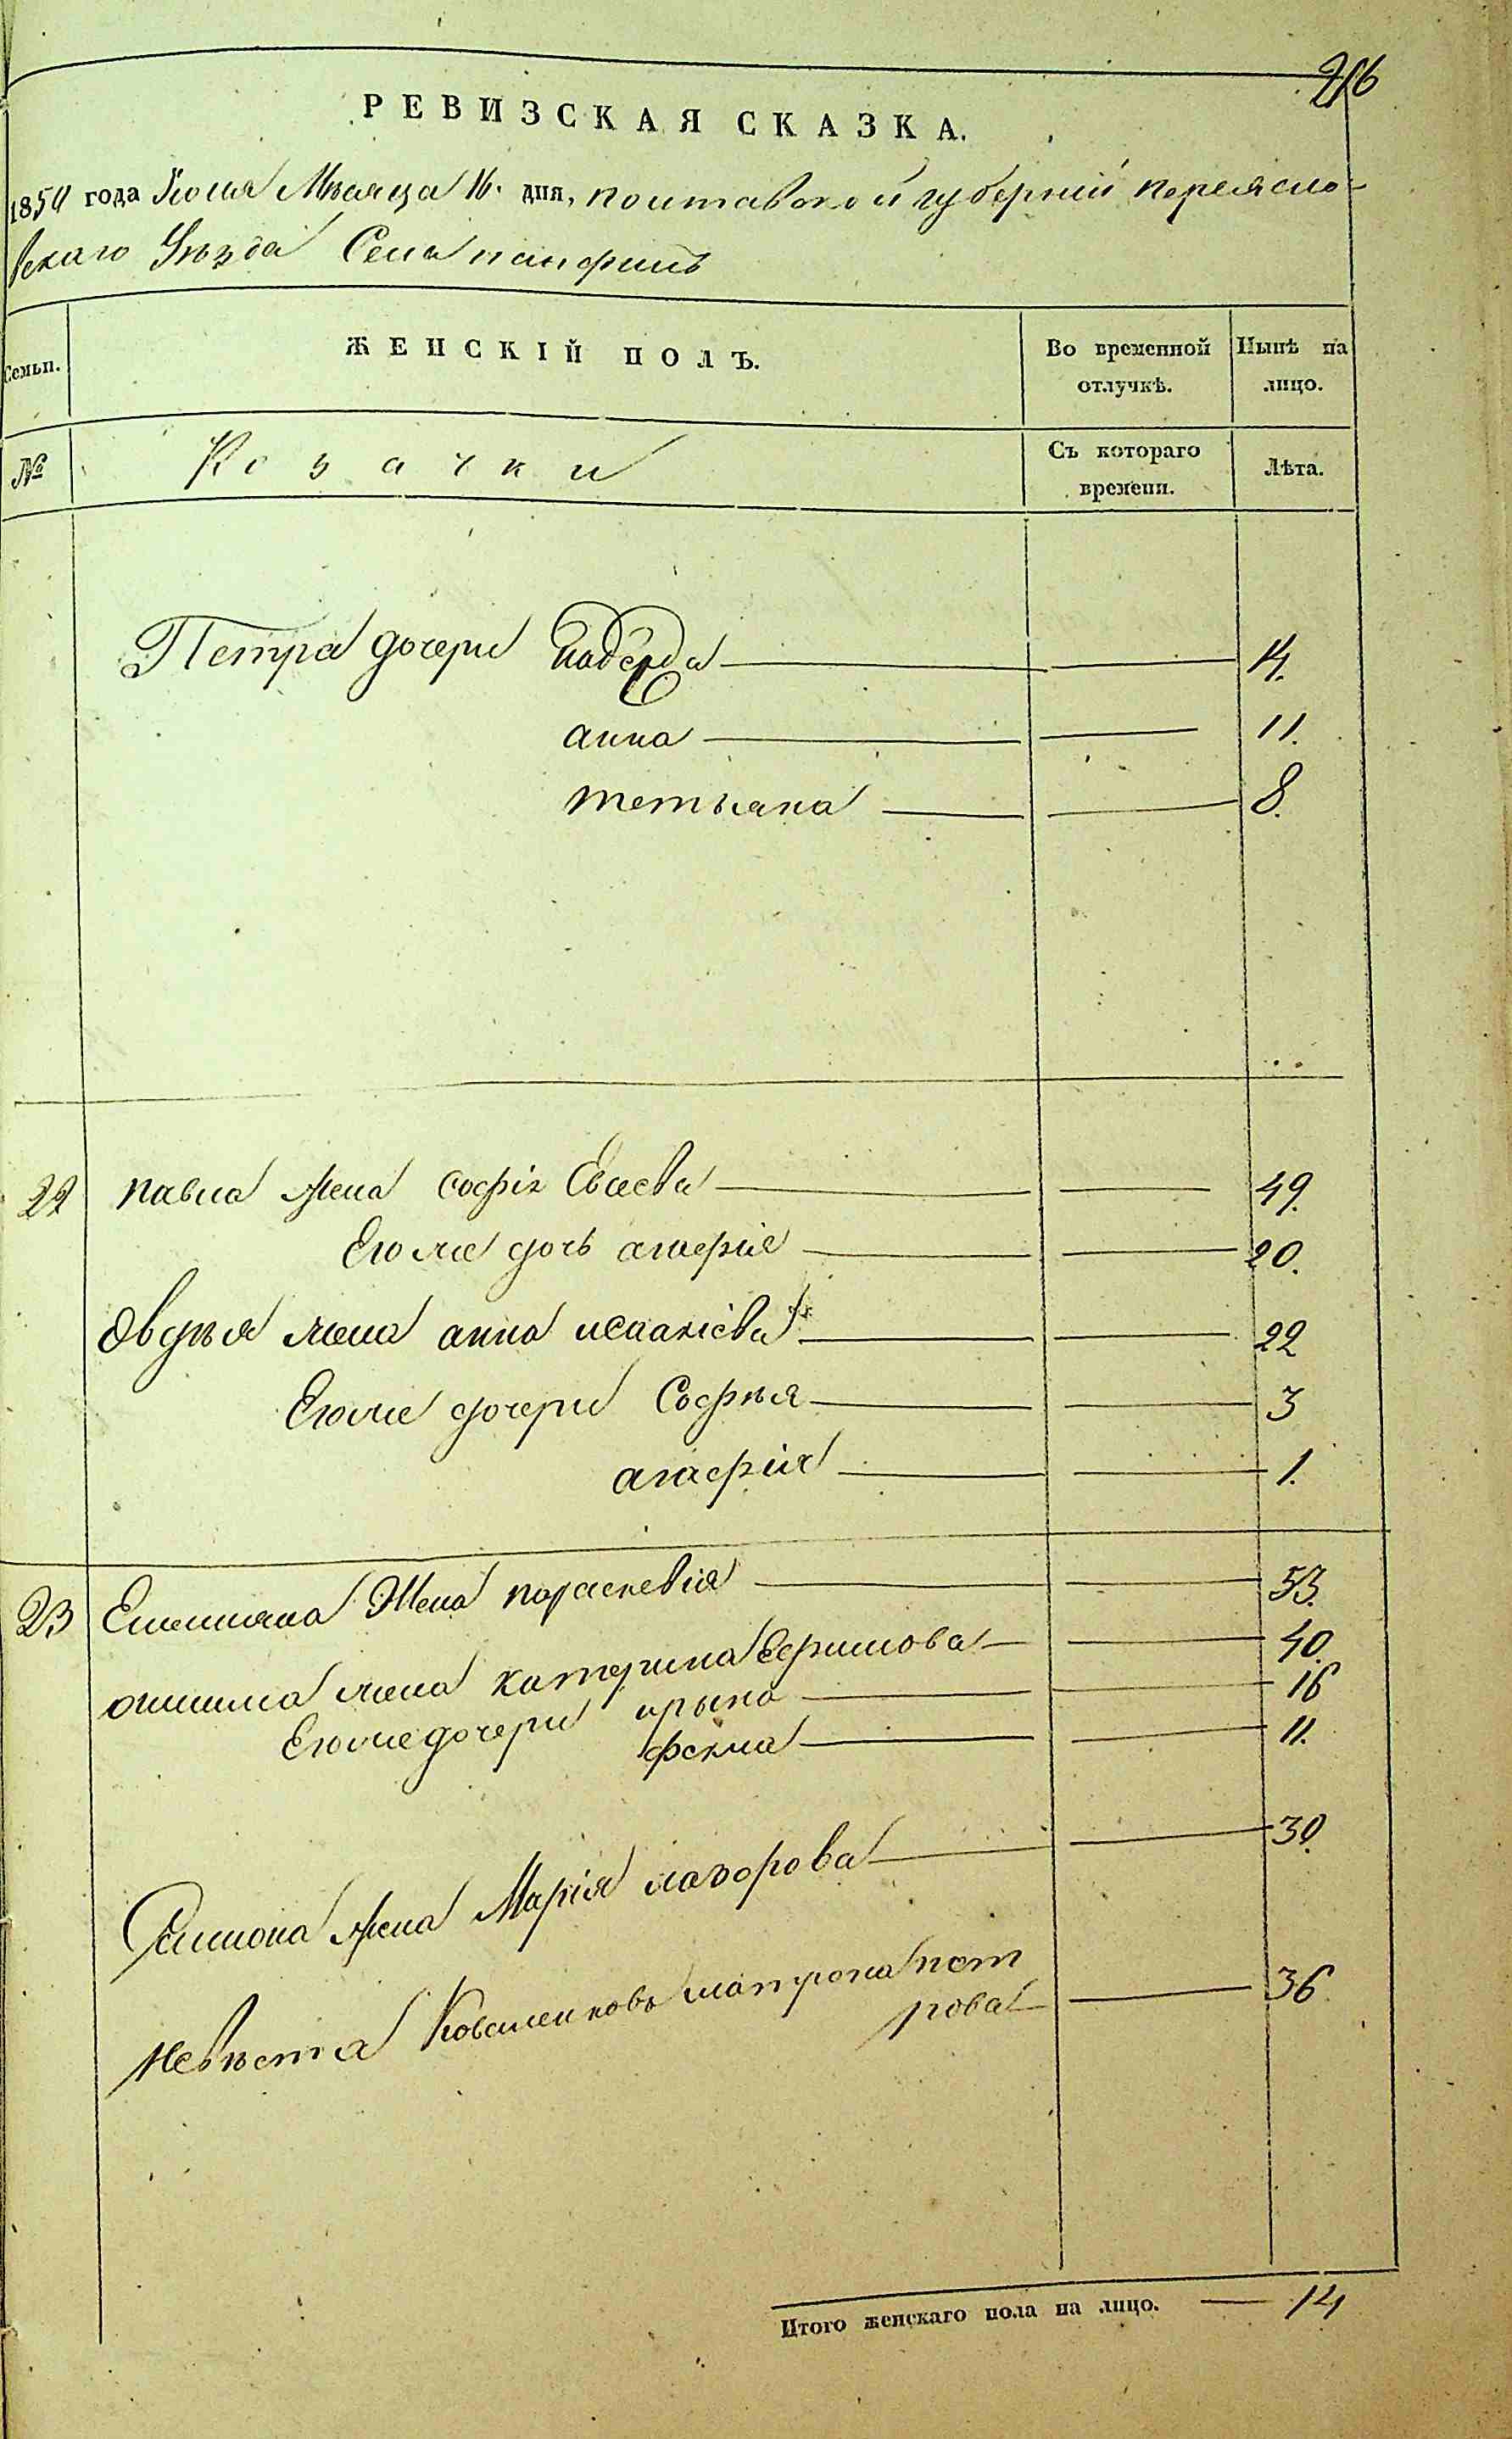 РЕВИЗСКАЯ СКАЗКА.
1850 года Июня Месяца 16. дня, полтавской губернии переясло-
вскаго Уѣзда Села панфилъ
Семьи. ЖЕНСКІЙ ПОЛЪ. Во временной отлучкѣ. Нынѣ на лицо.
№ Козачки Съ котораго времени. Лѣта.
Петра дочери надежда 14.
анна 11.
тетьяна 8.
22 павла жена софія Евсева 49.
Его же дочь агафия 20.
Авдѣя жена анна исакіева 22
Его же дочери Софья 3
агафия 1.
23 Емельяна Жена параскевия 53.
онисима жена катерина Ефимова 40.
Его же дочери ирына 16
фекла 11.
Самсона жена Марія лазорова 30.
невѣста матрона пет
рова 36.
Итого женскаго пола на лицо. 14